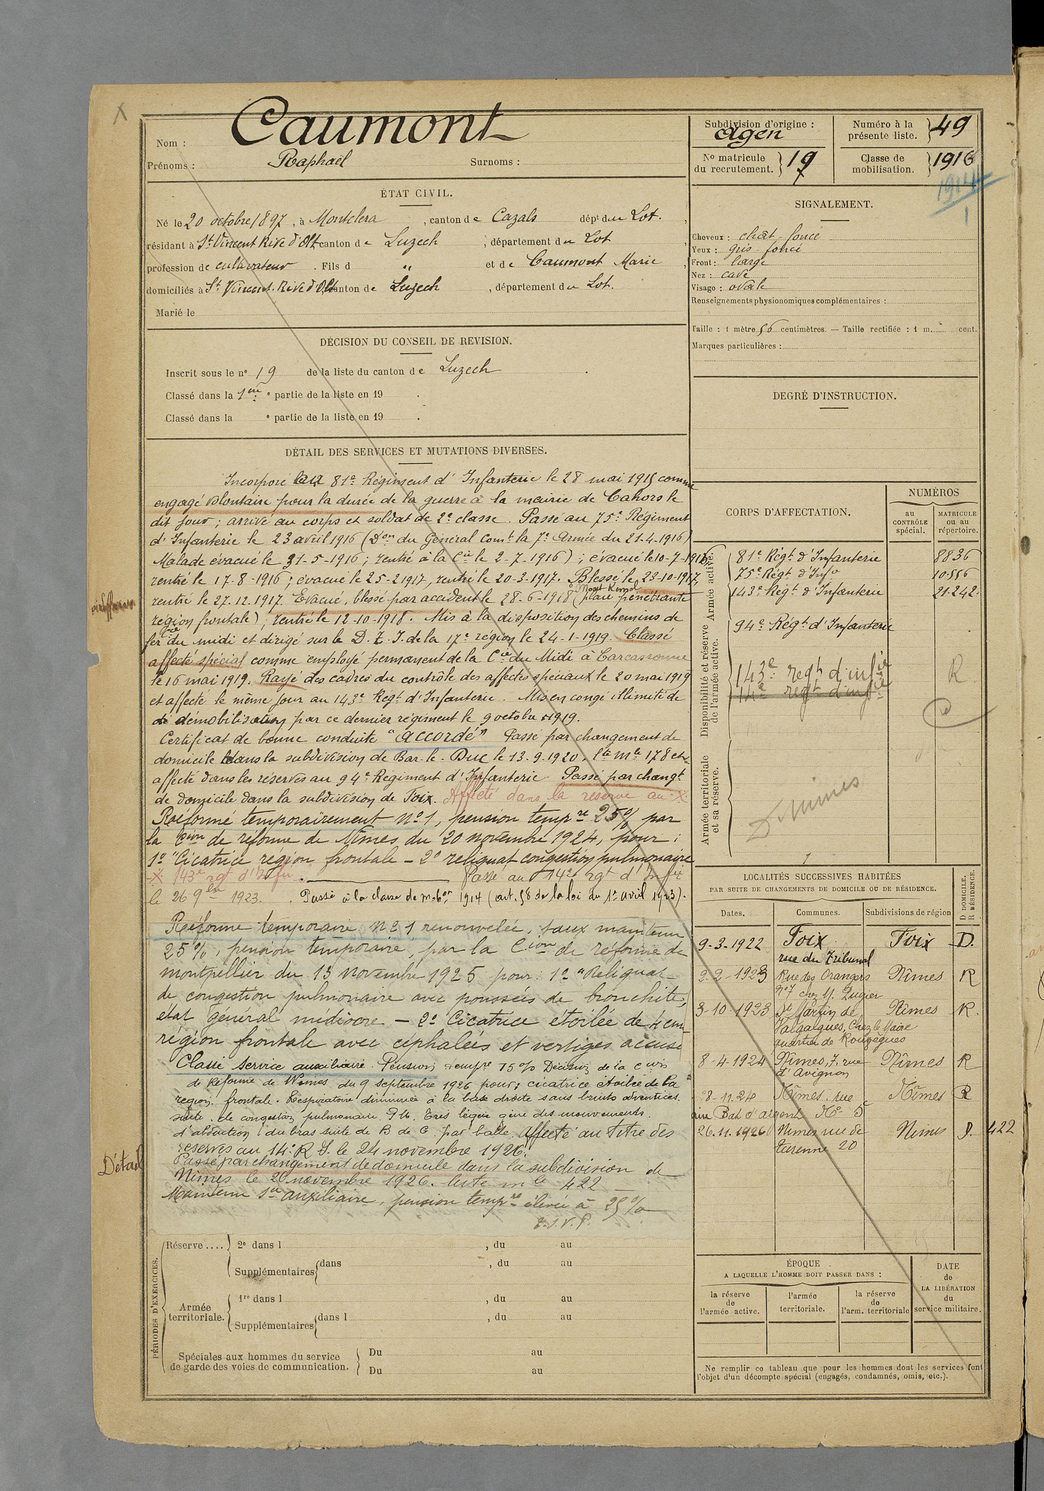 Nom : Caumont
Prénoms : Raphaël Surnoms :
ÉTAT CIVIL.
Né le 20 octobre 1897, à Montclera, canton de Cazals dépt du Lot.,
résidant à St Vincent Rive d'Olt canton de Luzech, département du Lot
profession de cultivateur. Fils d " et de Caumont Marie
domiciliés à St Vincent-Rive d'Olt canton de Luzech, département du Lot.
Marié le
DÉCISION DU CONSEIL DE REVISION.
Inscrit sous le nº 19 de la liste du canton de Luzech.
Classé dans la 1ère partie de la liste en 19 .
Classé dans la e partie de la liste en 19 .
DÉTAIL DES SERVICES ET MUTATIONS DIVERSES.
Incorporé au 81e Régiment d'Infanterie le 28 mai 1915 comme
engagé volontaire pour la durée de la guerre à la mairie de Cahors le
dit jour ; arrivé au corps et soldat de 2e classe. Passé au 75e Régiment
d'Infanterie le 23 avril 1916 (Don du Général Comt la 7e Armée du 21.4.1916)
Malade évacué le 31-5-1916 ; rentré à la Cie le 2-7-1916) ; évacué le 10-7-1916
rentré le 17-8-1916 ; évacué le 25-2-1917, rentré le 20-3-1917. Blessé le 23-10-1917
rentré le 27.12.1917. Evacué, blessé par accident le 28-6-1918 (plaie pénétrante
région frontale), rentré le 12-10-1918. Mis à la disposition des chemins de
fer du midi et dirigé sur le D. T. I. de la 17e région le 24-1-1919. Classé
affecté spécial comme employé permanent de la Cie du Midi à Carcassonne
le 16 mai 1919. Rayé des cadres du contrôle des affectés spéciaux le 20 mai 1919
et affecté le même jour au 143e Régt d'Infanterie. Mis en congé illimité de
démobilisation par ce dernier régiment le 9 octobre 1919.
Certificat de bonne conduite "accordé" Passé par changement de
domicile dans la subdivision de Bar-le-Duc le 13.9.1920. Lte mle 178 et
affecté dans les réserves au 94e Régiment d'Infanterie Passé par changt
de domicile dans la subdivision de Foix. Affecté dans la réserve au X
Réformé temporairement Nº1, pension tempre 25% par
la Cion de réforme de Nîmes du 20 novembre 1924, pour :
1º "Cicatrice région frontale – 2º reliquat congestion pulmonaire
X 143e rgt d'Infie. Passé au 14e rgt d'infie
le 26 9bre 1923. Passé à la classe de mobon 1914 (art. 58 de la loi du 1er avril 1923).
Réforme temporaire Nº 1 renouvelée, taux maintenu
25%, pension temporaire, par la Cion de réforme de
Montpellier du 13 novembre 1925 pour : 1º "Reliquat
de congestion pulmonaire avec poussées de bronchite,
état général médiocre – 2º Cicatrice étoilée de 4 cm
région frontale avec céphalées et vertiges accusés
Classé service auxiliaire Pension tempre 15% Décision de la Cion
de Réforme de Nîmes du 9 septembre 1926 pour, cicatrice étoilée de la
région frontale. Respiratoire diminuée à la base droite sans bruits adventices
suite de congestion pulmonaire. Très légère gêne des mouvements
d'abduction du bras suite de B de G. par balle. Affecté au titre des
réserves au 14e R. I. le 24 novembre 1926.
Passé par changement de domicile dans la subdivision de
Nîmes le 26 novembre 1926. liste mle 422
Maintenu Sce auxiliaire, pension tempre élevée à 25%
T.S.V.P.
Détail
PÉRIODES D'EXERCICES.
Réserve .... 2e dans l , du au
Supplémentaires dans , du au
Armée territoriale. 1re dans l , du au
Supplémentaires dans l , du au
Spéciales aux hommes du service de garde des voies de communication. Du au
Du au
Subdivision d'origine : Agen
Nº matricule du recrutement. 19
Numéro à la présente liste. 49
Classe de mobilisation. 1916
1914
SIGNALEMENT.
Cheveux : chât-foncé
Yeux : gris foncé
Front : large
Nez : cave
Visage : ovale
Renseignements physionomiques complémentaires :
Taille : 1 mètre 56 centimètres. — Taille rectifiée : 1 m. cent.
Marques particulières :
DEGRÉ D'INSTRUCTION.
CORPS D'AFFECTATION.
NUMÉROS
au contrôle spécial.
MATRICULE ou au répertoire.
Armée active.
81e Régt d'Infanterie 8836
75e Régt d'Infie 10556
143e Régt d'Infanterie 21.242
Disponibilité et réserve de l'armée active.
94e Régt d'Infanterie
143e regt d'infie R
14e regt d'infie
Armée territoriale et sa réserve.
D Nîmes
LOCALITÉS SUCCESSIVES HABITÉES
PAR SUITE DE CHANGEMENTS DE DOMICILE OU DE RÉSIDENCE.
Dates. Communes. Subdivisions de région D DOMICILE. R RÉSIDENCE.
9-3-1922 Foix Foix D.
rue du Tribunal
2-2-1923 Rue des Orangers Nîmes R
nº7 chez M. Lugier
3-10-1923 St Martin de Nîmes R.
Valgalgues, chez le Maire
quartier de Rouzègues
8-4-1924 Nîmes, 7, rue Nîmes R
d'Avignon
28-11.24 Nîmes. rue Nîmes R
du Bat d'argent Nº 5
26.11.1926 Nîmes rue de Nîmes D. 422
turenne 20
ÉPOQUE
A LAQUELLE L'HOMME DOIT PASSER DANS :
la réserve de l'armée active.
l'armée territoriale.
la réserve de l'arm. territoriale
DATE de LA LIBÉRATION du service militaire.
Ne remplir ce tableau que pour les hommes dont les services font
l'objet d'un décompte spécial (engagés, condamnés, omis, etc.).